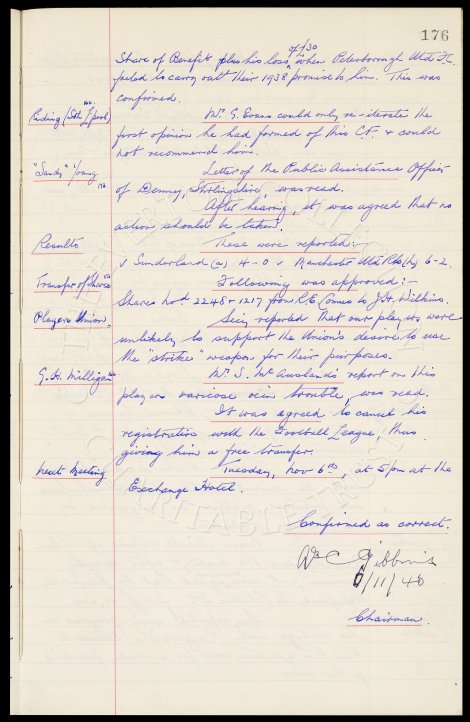 176
Share of Benefit plus his loss of £30 when Peterborough Utd F.C.
failed to carry out their 1938 promise to him. This was
confirmed.
Riding (Sth L'pool) Mr. G. Evans could only re-iterate the
first opinion he had formed of this C.F. & could
not recommend him.
"Sandy" Young Letter of the Public Assistance Officer
of Denney, Stirlingshire, was read.
After hearing, it was agreed that no
action should be taken.
Results These were reported:-
v Sunderland (a) 4-0 v Manchester Utd Res (h) 6-2.
Transfer of Shares Following was approved:-
Shares No's 2248 & 1217 from R.E. to J.H. Wilkins.
Players Union Being reported that our players were
unlikely to support the Union's desire to use
the "strike" weapon for their purposes.
G.H. Milligan Mr. S. McAusland's report on this
players varicose vein trouble, was read.
It was agreed to cancel his
registration with the Football League, thus
giving him a free transfer.
Next Meeting Tuesday, Nov 6th, at 5pm at the
Exchange Hotel.
Confirmed as correct.
Wm C Gibbins
6/11/45
Chairman.